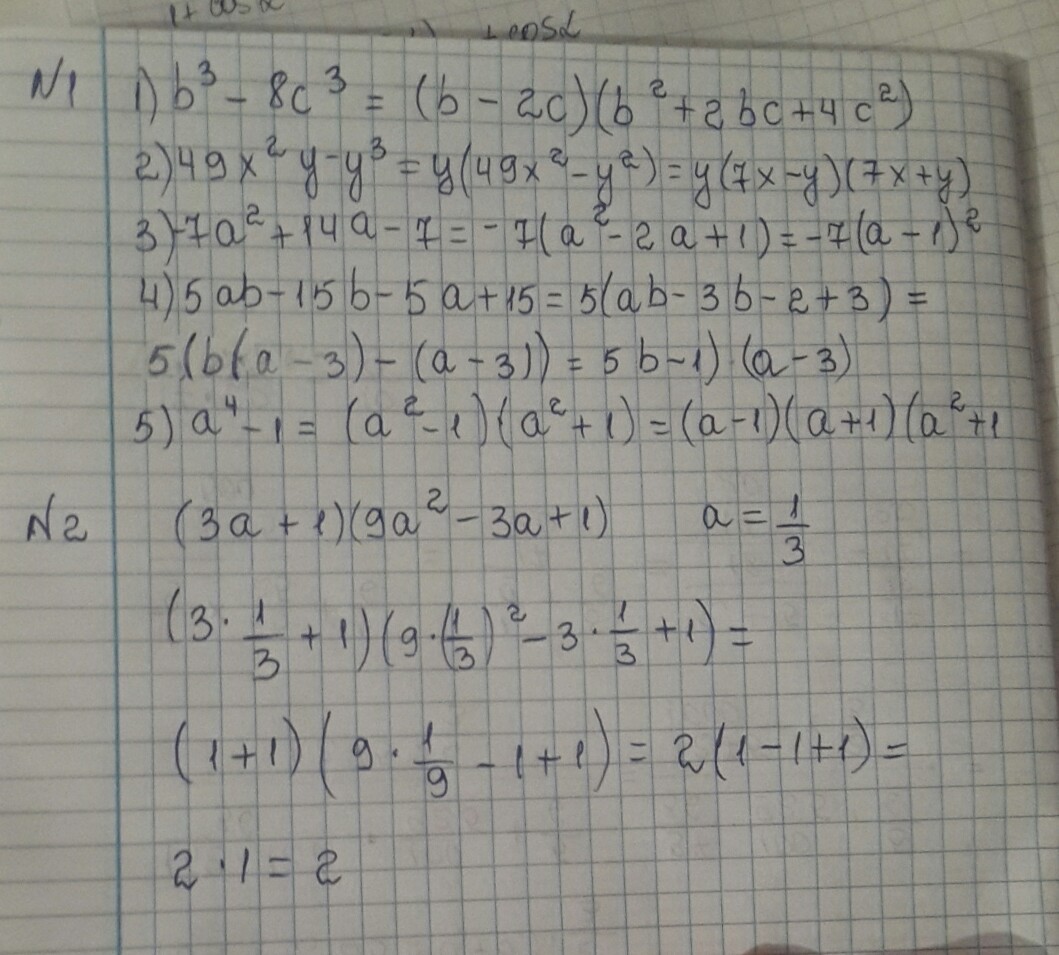 1+cosα
+cosα
N1 1) b³ - 8c³ = (b - 2c)(b² + 2bc + 4c²)
2) 49x²y - y³ = y(49x² - y²) = y(7x - y)(7x + y)
3) -7a² + 14a - 7 = -7(a² - 2a + 1) = -7(a - 1)²
4) 5ab - 15b - 5a + 15 = 5(ab - 3b - 2 + 3) =
5(b(a - 3) - (a - 3)) = 5b - 1)(a - 3)
5) a⁴ - 1 = (a² - 1)(a² + 1) = (a - 1)(a + 1)(a² + 1
N2 (3a + 1)(9a² - 3a + 1) a = 1/3
(3 · 1/3 + 1)(9 · (1/3)² - 3 · 1/3 + 1) =
(1 + 1)(9 · 1/9 - 1 + 1) = 2(1 - 1 + 1) =
2 · 1 = 2